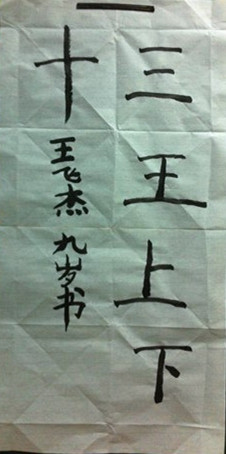 一三王上下
十
王飞杰 九岁书